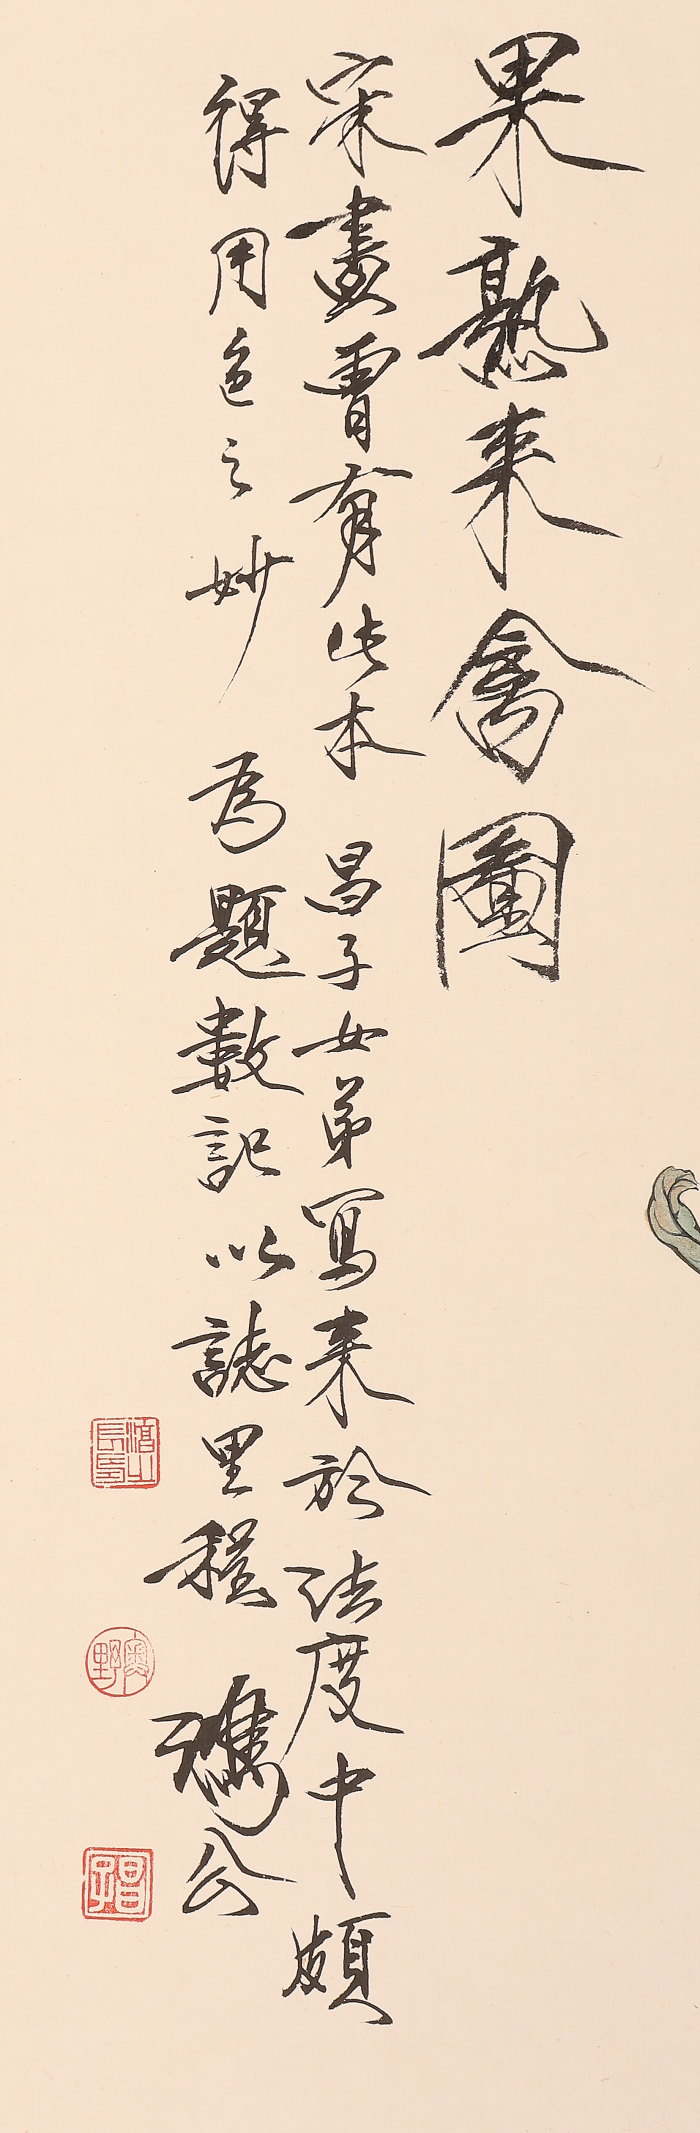 果熟来禽圖
宋畫曾有此本 昌子女弟寫来於法度中頗
得用色之妙 為題數記以誌里程 鴻公
奧野
昌子